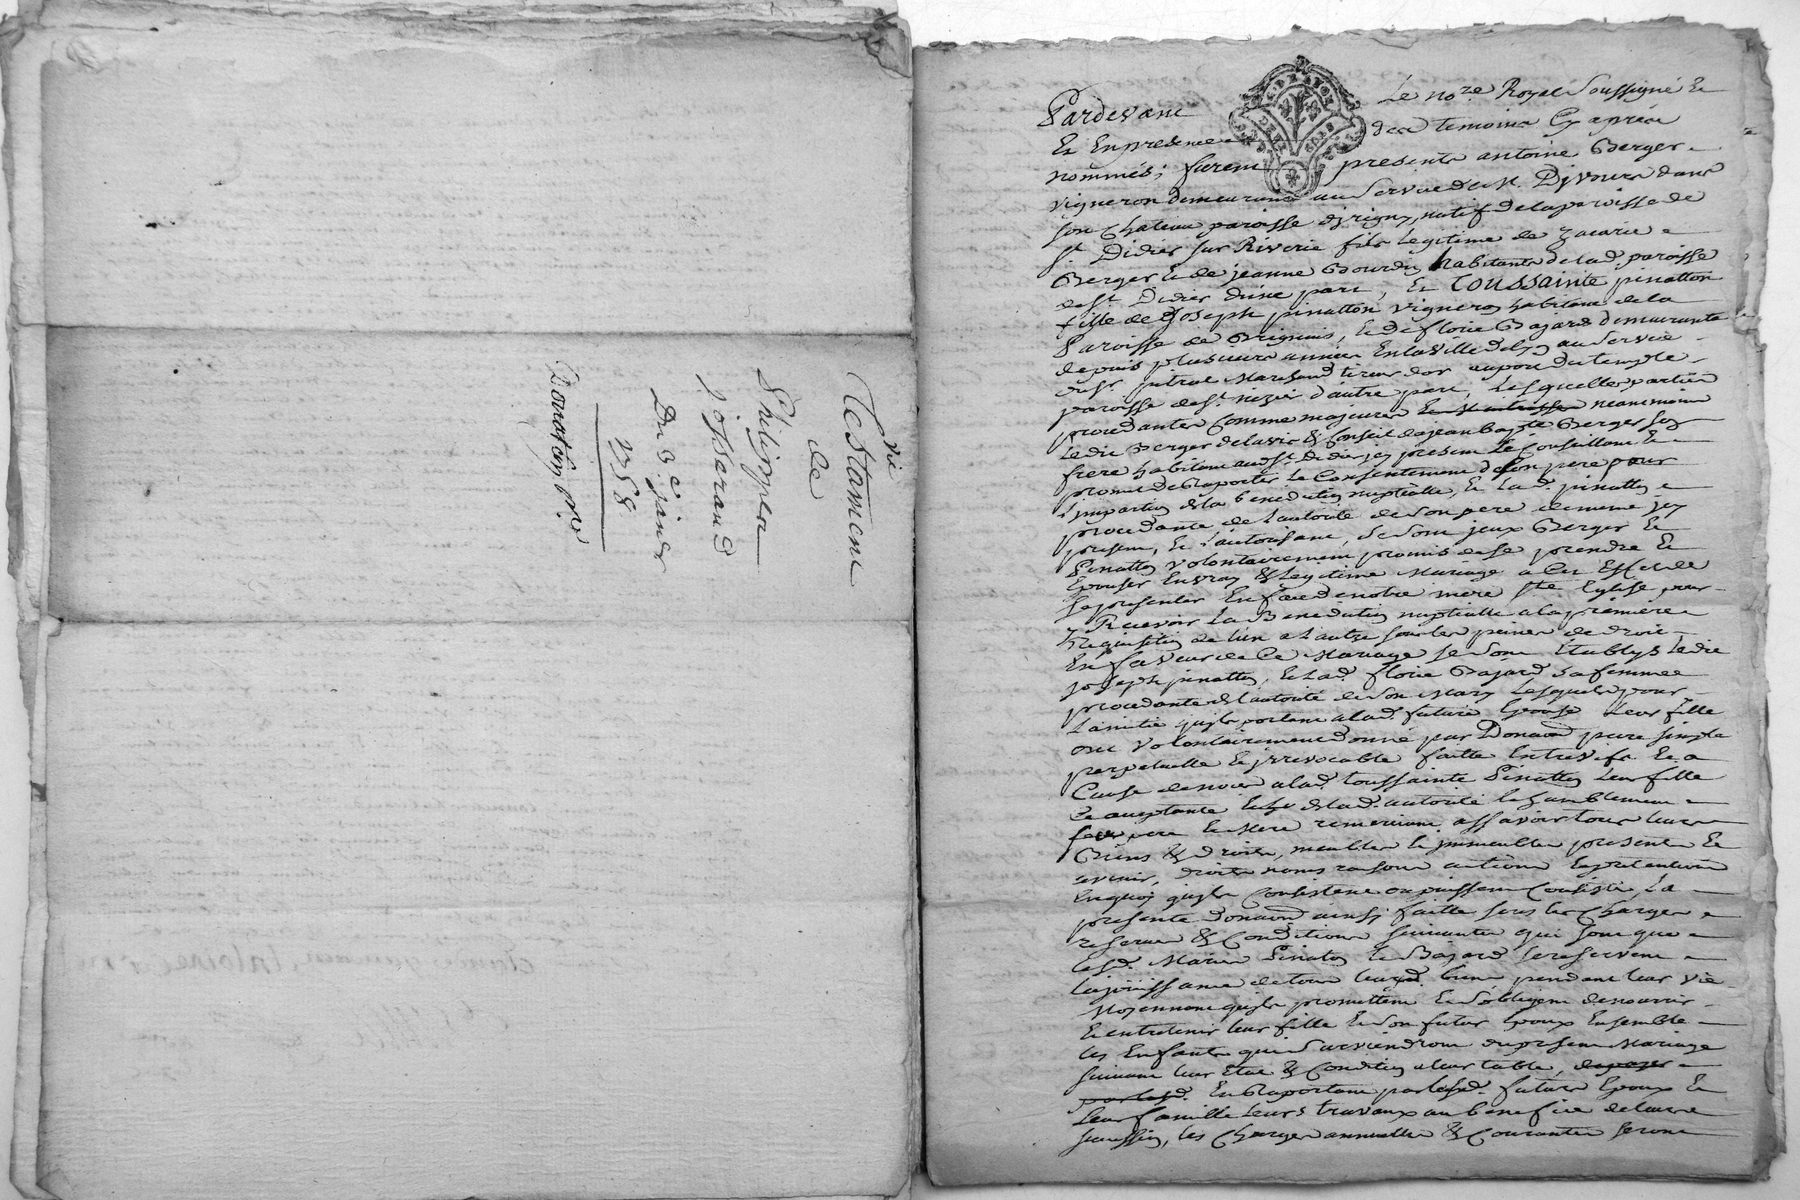 vie
Testament
de
Philippe
josserand
Du 3e janer
1758
Donation nre
Pardevant Le nore Royal Soussigné Et
Et En presence des temoins Cy apres
nommés; furent presents antoine Berger
vigneron demeurant au service de Mr. Divours dans
son Chateau paroisse dyrigny, natif de la paroisse de
st. Didier sur Riverie fils Legitime de zacarie
Berger & de jeanne Bourdin habitants de lad. paroisse
de st. Didier d'une part, Et Toussainte pinatton
fille de Joseph pinatton vigneron habitant de la
Paroisse de Brignais, & de florie Bajard demeurante
depuis plusieurs années En la ville de lyon au service
du sr. Marchand tireur dor au port du temple
paroisse de st. nizier d'autre part, Lesquelles parties
procedantes Comme majeures neanmoins
Ledit Berger de lavis & Conseil de jean Bapte Berger son
frere habitant aud st. Didier jcy present Le Conseillant &
promet de Raporter Le Consentement de son pere pour
L'impartion de la benediction nuptialle, & Lad. pinatton
procedante de L'autorité de son pere de meme jcy
present, & L'autorisant, se sont jceux Berger Et
Pinatton volontairement promis de se prendre Et
Epouser En vray & Legitime Mariage a Cet Effet de
se presenter En face de notre mere Ste Eglise pour
Recevoir La Benediction nuptialle a la premiere
Requisition de lun a L'autre sous les peines de droit
En faveur de Ce Mariage se sont Etablys Ledit
joseph pinatton, & Lad. florie Bajard sa femme
procedante de L'autorité de son Mary Lesquels pour
L'amitié qu'ils portent a lad. future Epouse Leur fille
ont volontairement donné par Donation pure simple
perpetuelle & jrrevocable faitte Entrevifs & a
Cause de noces a lad. toussainte Pinatton Leur fille
acceptante de lad. autorité & humblement
ses pere & Mere remerciant assavoir tous leurs
Biens & droits, meubles & jmmeubles presents Et
avenir, droits noms raisons actions & pretentions
En quoy qu'ils Consistent ou puissent Consister La
presente donation ainsy faitte sous les Charges
reserves & Conditions suivantes qui sont que
lesd. Mariés Pinatton & Bajard se reservent
la jouissance de tous leursd. biens pendant leur vie
Moyennant qu'ils promettent & s'obligent de nourrir
& entretenir leur fille & son futur Epoux Ensemble
les Enfants qui surviendront du present Mariage
suivant leur Etat & Condition a leur table,
En Raportant par lesd. futurs Epoux Et
Leur famille Leurs travaux au benefice de leurs
les Charges annuelles & Courantes seront